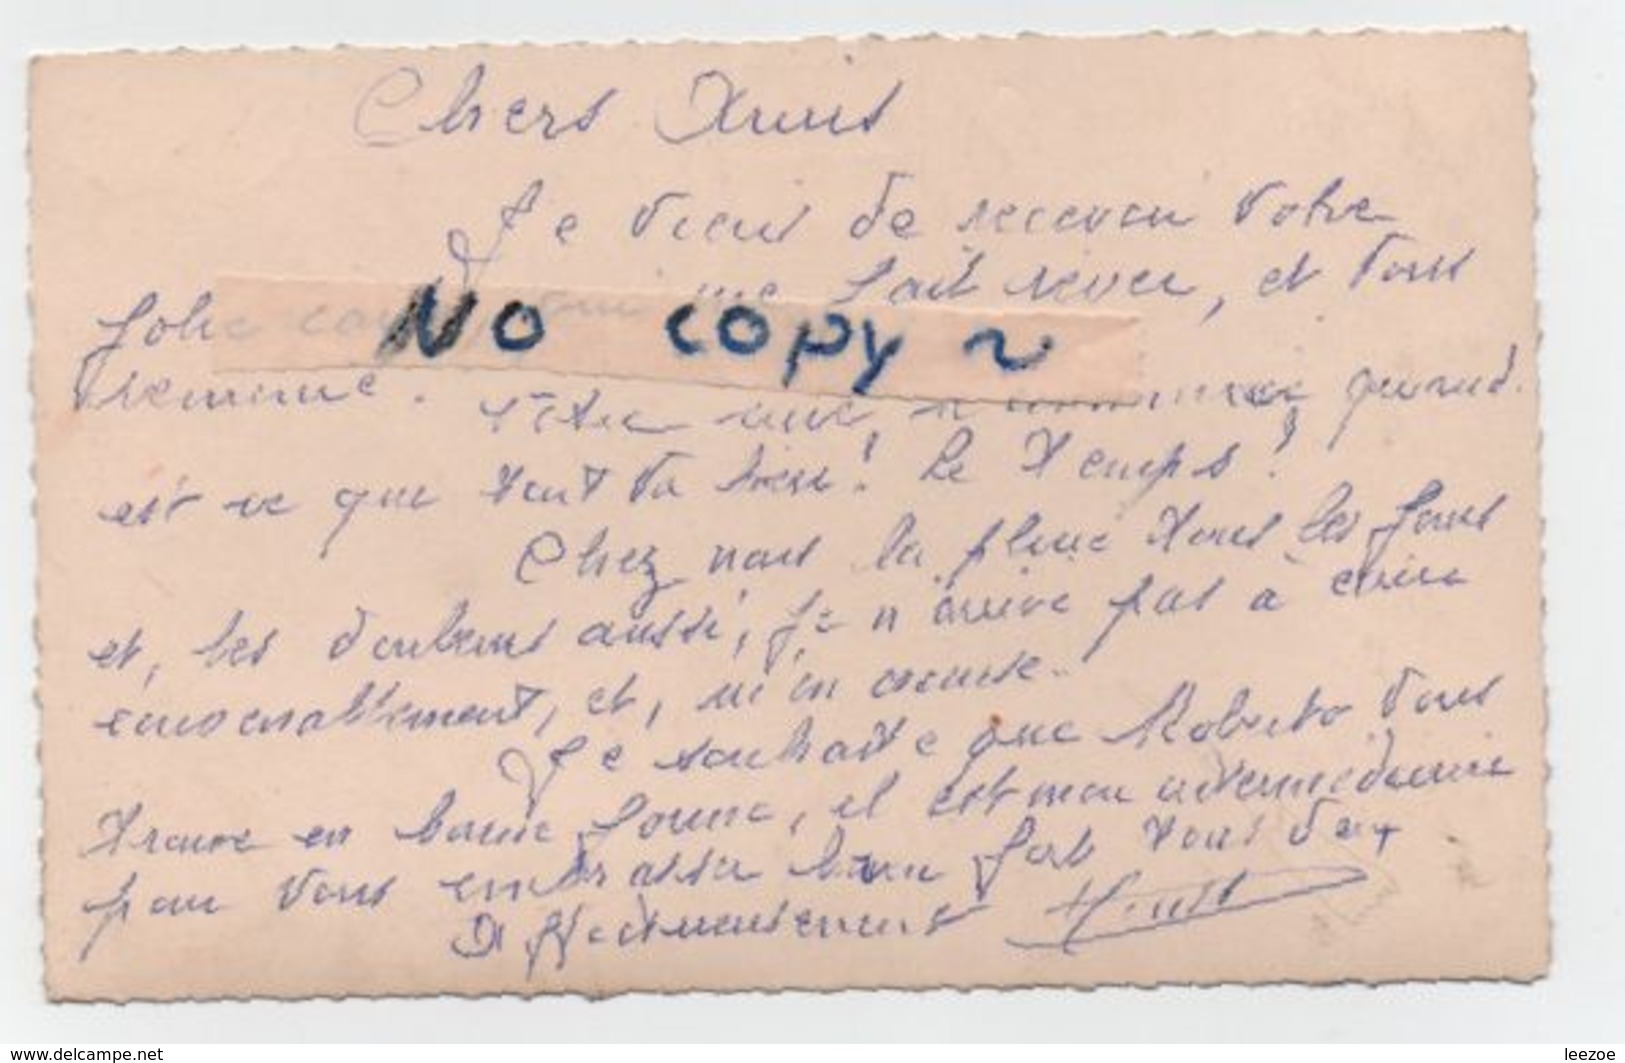 Chers Amis
Je viens de recevoir votre
jolie qui me fait rever, et vous
remercie. quand
NO copy ~
est ce que tout va bien! Le Temps!
Chez nous la pluie tous les jours
et, les douleurs aussi, je n'arrive pas a ecrire
convenablement, et, m'en excuse.
Je souhaite que Roberto vous
trouve en bonne forme, il est mon intermediaire
pour vous embrasser bien fort tous deux
Affectueusement
www.delcampe.net
leezoe